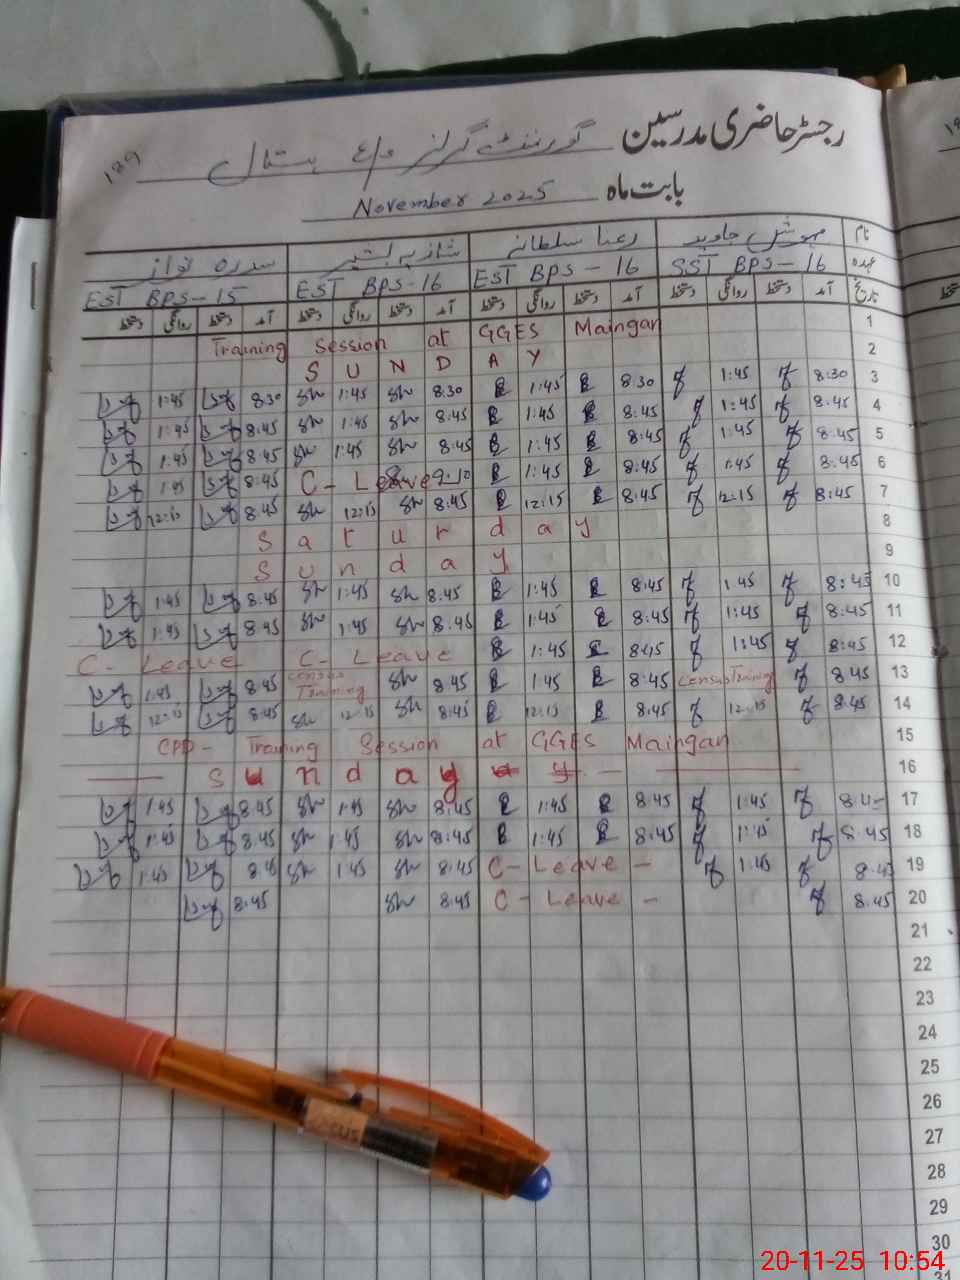 رجسٹر حاضری مدرسین گورنمنٹ گرلز
189
بابت ماہ November 2025
نام مہوش جاوید رعنا سلطانہ شازیہ بشیر سدرہ نواز
عہدہ SST BPS-16 EST BPS-16 EST BPS-16 EST BPS-15
تاریخ آمد دستخط روانگی دستخط آمد دستخط روانگی دستخط آمد دستخط روانگی دستخط آمد دستخط روانگی دستخط
Training Session at GGES Maingan 1
S U N D A Y 2
1:45 8:30 1:45 8:30 1:45 8:30 1:45 8:30 3
1:45 8:45 1:45 8:45 1:45 8:45 1:45 8:45 4
1:45 8:45 1:45 8:45 1:45 8:45 1:45 8:45 5
1:45 8:45 C- Leave 9-10 1:45 8:45 1:45 8:45 6
12:15 8:45 12:15 8:45 12:15 8:45 12:15 8:45 7
S a t u r d a y 8
S u n d a y 9
1:45 8:45 1:45 8:45 1:45 8:45 1:45 8:45 10
1:45 8:45 1:45 8:45 1:45 8:45 1:45 8:45 11
C- Leave C- Leave 1:45 8:45 1:45 8:45 12
1:45 8:45 census Training 8:45 1:45 8:45 census Training 8:45 13
12:15 8:45 12:15 8:45 12:15 8:45 12:15 8:45 14
CPD- Training Session at GGES Maingan 15
S u n d a y 16
1:45 8:45 1:45 8:45 1:45 8:45 1:45 17
1:45 8:45 1:45 8:45 1:45 8:45 1:45 8:45 18
1:45 1:45 8:45 C- Leave - 1:45 19
8:45 8:45 C- Leave - 8:45 20
21
22
23
24
25
26
27
28
29
30
31
20-11-25 10:54